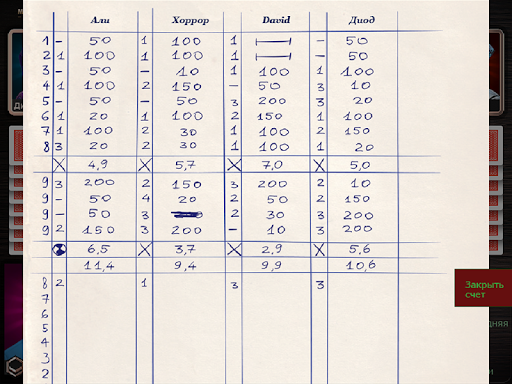 Али Хоррор David Диод
1 – 50 1 100 1 – 50
2 1 100 1 100 1 – 50
3 – 50 – 10 1 100 1 100
4 1 100 2 150 – 50 3 10
5 – 50 – 50 3 200 3 20
6 1 20 1 100 2 150 1 100
7 1 100 2 30 1 100 2 150
8 3 20 2 30 1 100 1 20
X 4,9 X 5,7 X 7,0 X 5,0
9 3 200 2 150 3 200 2 10
9 – 50 4 20 2 50 2 150
9 – 50 3 2 30 3 200
9 2 150 3 200 – 10 3 200
6,5 X 3,7 X 2,9 X 5,6
11,4 9,4 9,9 10,6
8 2 1 3 3
7
6
5
4
3
2
Закрыть
счет